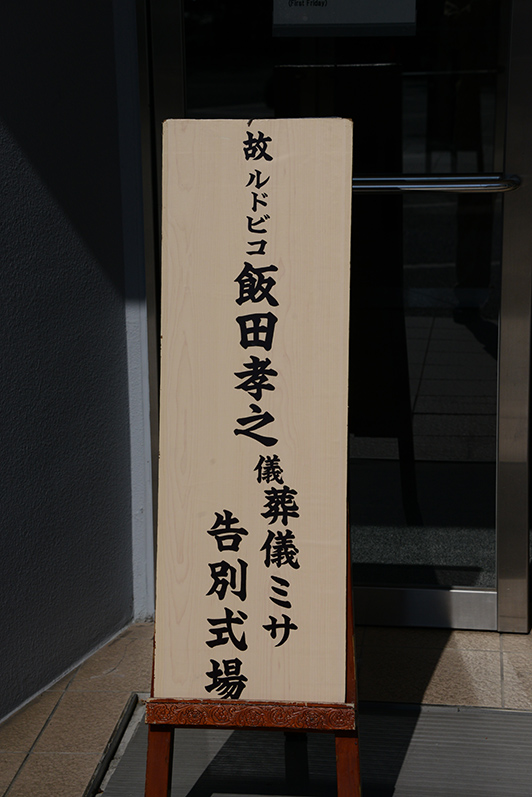 (First Friday)
故 ルドビコ 飯田孝之 儀 葬儀ミサ
告別式場